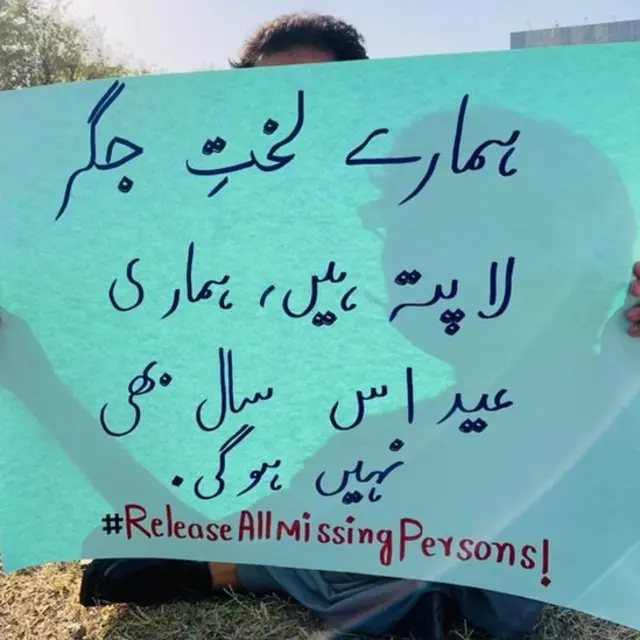 ہمارے لختِ جگر
لا پتہ ہیں، ہماری
عید اس سال بھی
نہیں ہوگی.
#ReleaseAllMissingPersons!